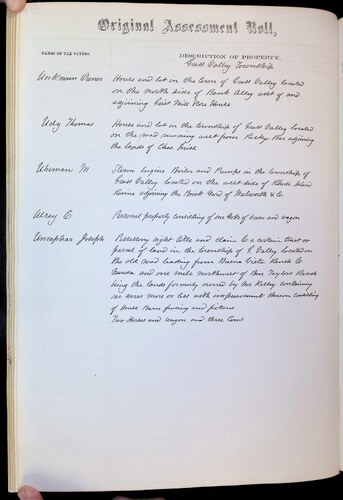 Original Assessment Roll,
NAMES OF TAX PAYERS.
DESCRIPTION OF PROPERTY.
Grass Valley Township
Unknown Owner
House and lot in the town of Grass Valley located
on the north side of Bank Alley west of and
adjoining
Udy Thomas
House and lot in the township of Grass Valley located
on the road running west from Rocky Bar adjoining
the lands of Chas
M
Steam Engine Boiler and Pumps in the township of
Grass Valley located on the west side of Rhode Island
Ravine adjoining the Brick Yard of & Co
C
Personal property consisting of one Yoke of oxen and wagon
Uncapher Joseph
Possessory right title and claim to a certain tract or
parcel of land in the township of G Valley located on
the old road leading from Buena Vista Ranch to
Nevada and one mile northwest of Ben Taylors Ranch
being the lands formerly owned by Kelley containing
acres more or less with improvements thereon consisting
of House Barn fencing and fixtures
Two Horses and wagon and three Cows